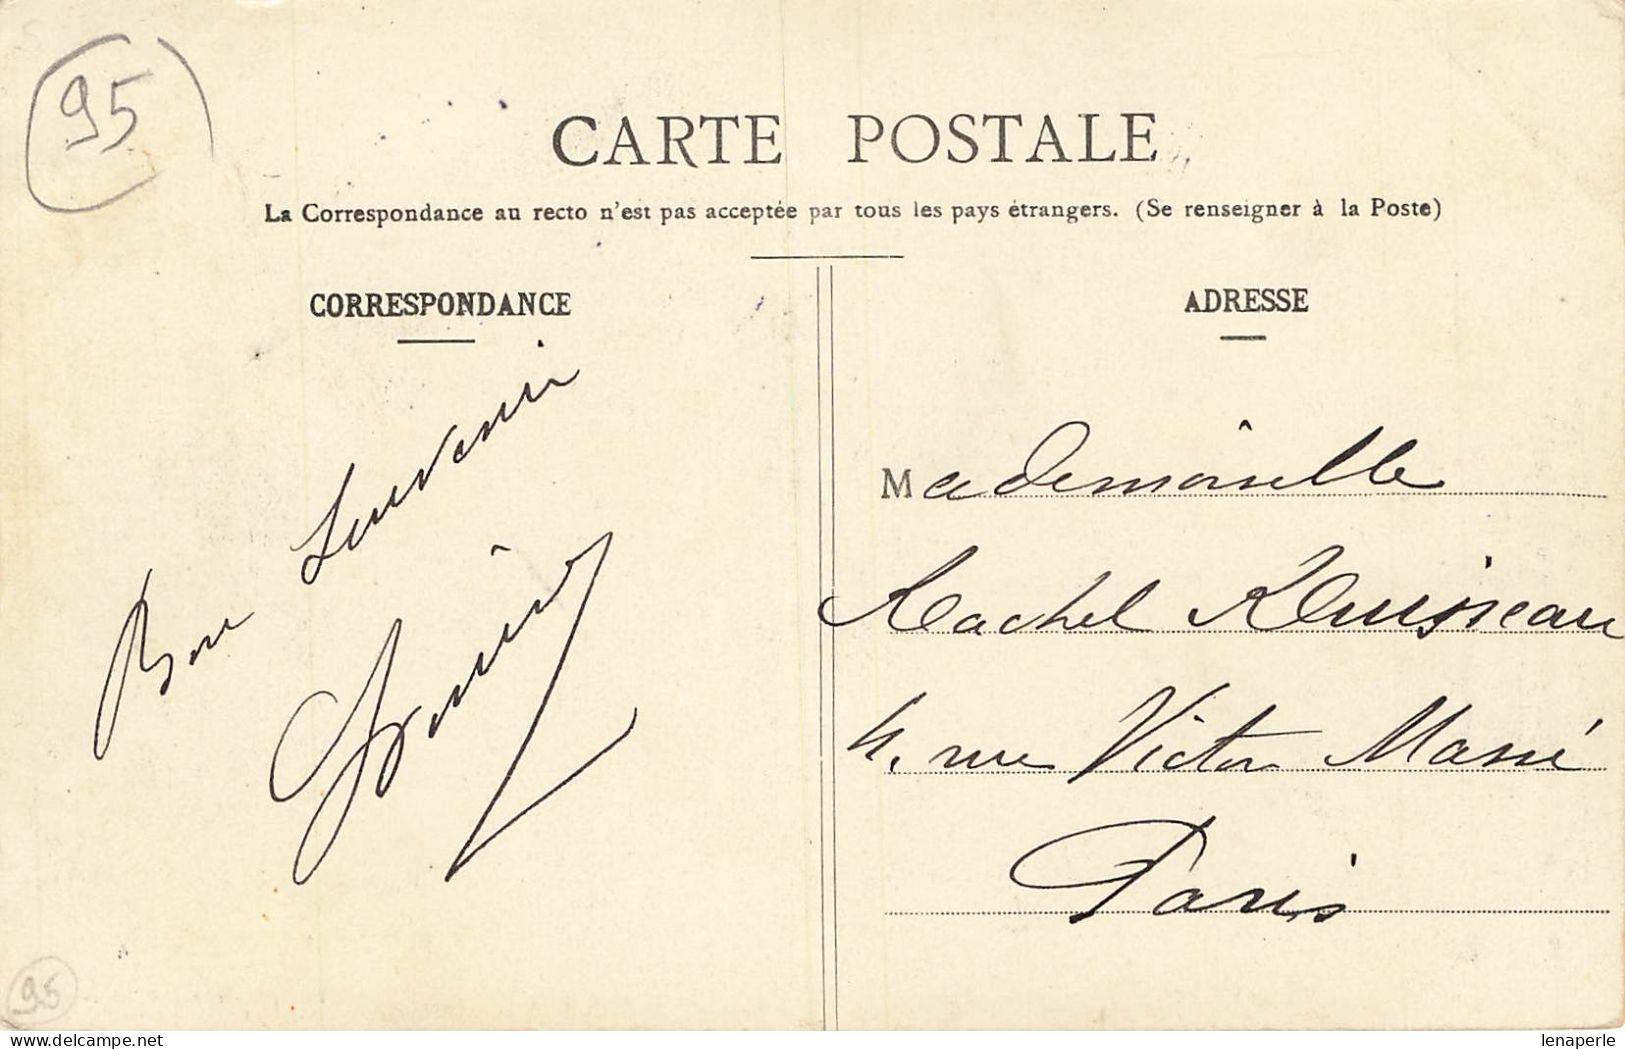 95
CARTE POSTALE
La Correspondance au recto n'est pas acceptée par tous les pays étrangers. (Se renseigner à la Poste)
CORRESPONDANCE
Bon Souvenir
ADRESSE
Mademoiselle
Rachel Ruisseau
4, rue Victor Massé
Paris
95
lenaperle